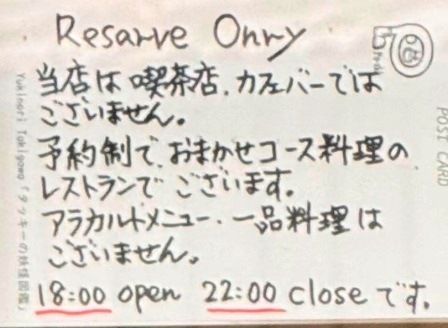 Resarve Onry
当店は喫茶店、カフェバーでは
ございません。
予約制で、おまかせコース料理の
レストランでございます。
アラカルトメニュー・一品料理は
ございません。
18:00 open 22:00 closeです。
POST CARD
Yukinori Tokigawa「タッキーの妖怪図鑑」